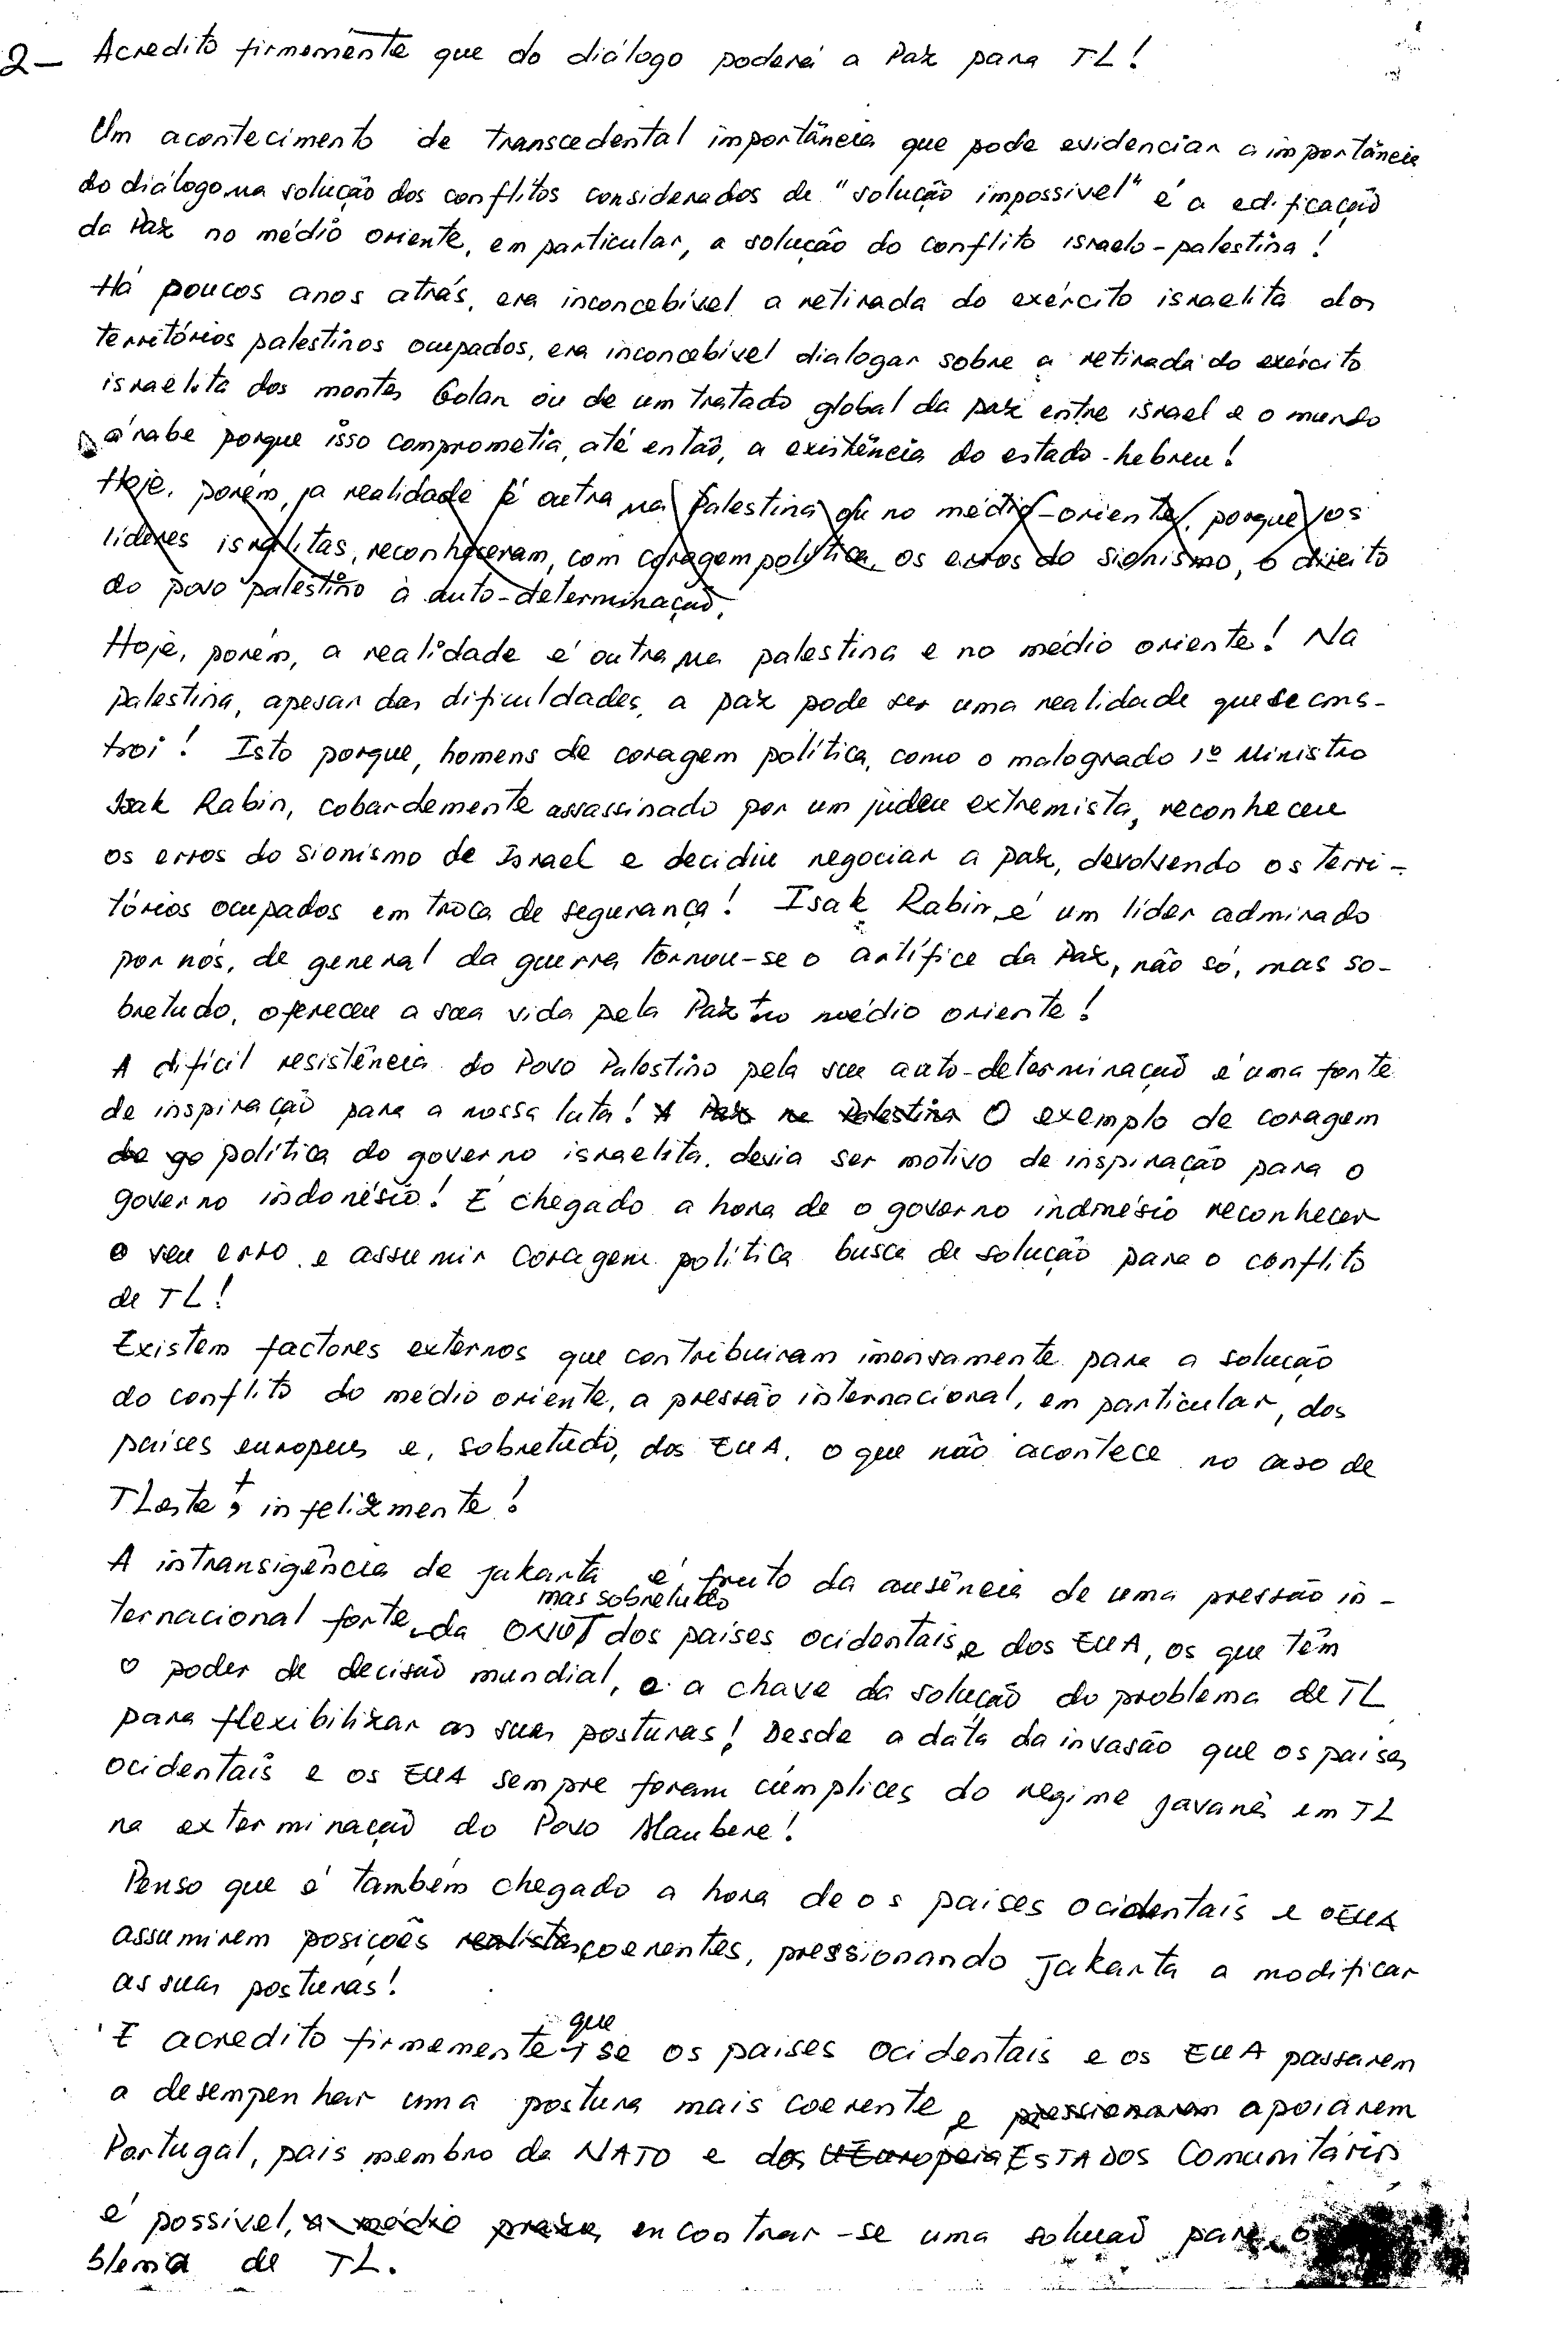 2- Acredito firmemente que do diálogo poderá a Paz para TL!
Um acontecimento de transcedental importância que pode evidenciar a importância
do diálogo, na solução dos conflitos considerados de "solução impossível" é a edificação
da Paz no médio oriente, em particular, a solução do conflito israelo-palestina!
Há poucos anos atrás, era inconcebível a retirada do exército israelita dos
territórios palestinos ocupados, era inconcebível dialogar sobre a retirada do exército
israelita dos montes Golan ou de um tratado global da paz entre israel e o mundo
árabe porque isso comprometia, até então, a existência do estado-hebreu!
Hoje, porém, a realidade é outra na Palestina ou no médio-oriente, porque os
líderes israelitas, reconheceram, com coragem política, os erros do sionismo, o direito
do povo palestino à auto-determinação.
Hoje, porém, a realidade é outra, na palestina e no médio oriente! Na
palestina, apesar das dificuldades, a paz pode ser uma realidade que se cons-
troi! Isto porque, homens de coragem política, como o malogrado 1º Ministro
Isak Rabin, cobardemente assassinado por um judeu extremista, reconheceu
os erros do sionismo de Israel e decidiu negociar a paz, devolvendo os terri-
tórios ocupados em troca de segurança! Isak Rabin, é um líder admirado
por nós, de general da guerra tornou-se o artífice da Paz, não só, mas so-
bretudo, ofereceu a sua vida pela Paz no médio oriente!
A difícil resistência do Povo Palestino pela sua auto-determinação é uma fonte
de inspiração para a nossa luta! A Paz na Palestina O exemplo de coragem
de go política do governo israelita, devia ser motivo de inspiração para o
governo indonésio! É chegado a hora de o governo indonésio reconhecer
o seu erro e assumir coragem política busca de solução para o conflito
de TL!
Existem factores externos que contribuiram imensamente para a solução
do conflito do médio oriente, a pressão internacional, em particular, dos
países europeus e, sobretudo, dos EUA, o que não acontece no caso de
TLeste, infelizmente!
A intransigência de jakarta é fruto da ausência de uma pressão in-
ternacional forte, da ONU mas sobretudo dos países ocidentais e dos EUA, os que têm
o poder de decisão mundial, e a chave da solução do problema de TL
para flexibilizar as suas posturas! Desde a data da invasão que os países
ocidentais e os EUA sempre foram cúmplices do regime javanês em TL
na exterminação do Povo Maubere!
Penso que é também chegado a hora de os países ocidentais e o EUA
assumirem posições realistas coerentes, pressionando Jakarta a modificar
as suas posturas!
E acredito firmemente que se os países ocidentais e os EUA passarem
a desempenhar uma postura mais coerente e pressionaram apoiarem
Portugal, país membro da NATO e dos UEuropeia ESTADOS Comunitários
é possível, a médio prazo, encontrar-se uma solução para o
blema de TL.